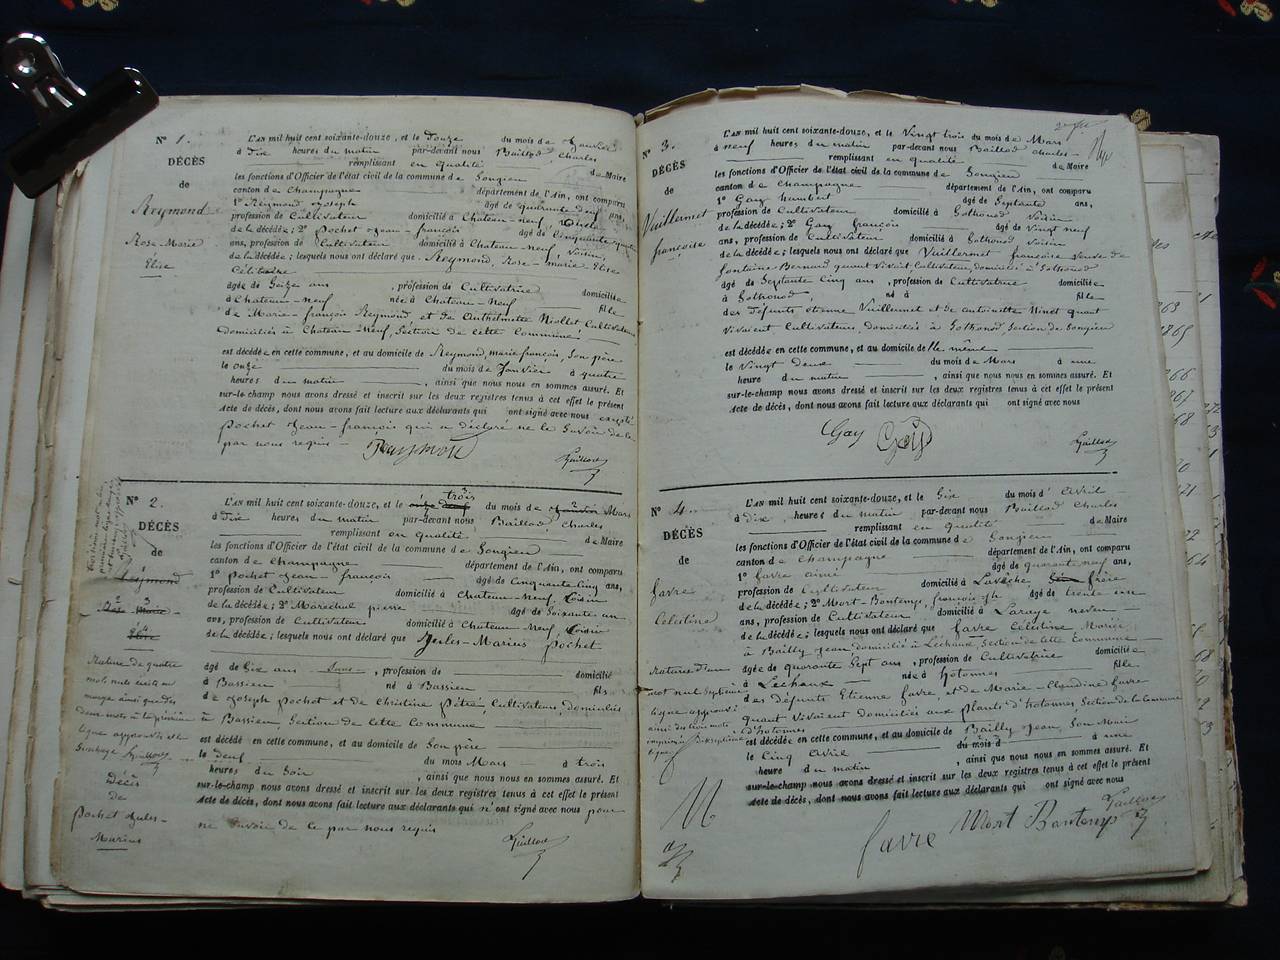 N° 1.
DÉCÈS
de
Reymond
Rose Marie
Élise
L'AN mil huit cent soixante-douze, et le Douze du mois de Janvier
à Dix heures du matin par-devant nous Baillod, Charles
remplissant en qualité de Maire
les fonctions d'Officier de l'état civil de la commune de Songieu
canton de Champagne département de l'Ain, ont comparu
1° Reymond Joseph âgé de quarante deux ans,
profession de Cultivateur domicilié à Chateau-neuf
de la décédée; 2° Pochet Jean-françois âgé de Cinquante quatre
ans, profession de Cultivateur domicilié à Chateau neuf Voisin,
de la décédée; lesquels nous ont déclaré que Reymond, Rose-marie Élise
Célibataire
âgée de Seize ans, profession de Cultivatrice domiciliée
à Chateau-neuf née à Chateau-Neuf fille
de Marie-françois Reymond et de Anthelmette Niollet Cultivateurs
domiciliés à Chateau-Neuf, Section de cette Commune
est décédée en cette commune, et au domicile de Reymond, marie françois, Son père
le onze du mois de Janvier à quatre
heures du matin, ainsi que nous nous en sommes assuré. Et
sur-le-champ nous avons dressé et inscrit sur les deux registres tenus à cet effet le présent
acte de décès, dont nous avons fait lecture aux déclarants qui ont signé avec nous excepté
Pochet Jean-françois qui a déclaré ne le Savoir de le
par nous requis Reymond
N° 2.
DÉCÈS
de
Reymond
Rose Marie
Élise
Rature de quatre
mots nuls écrits en
marge ainsi que des
deux mots à la première
ligne approuvés et le
Surcharge
Décès
de
Pochet Jules-
Marius
L'AN mil huit cent soixante-douze, et le trois du mois de Janvier Mars
à Dix heures du matin par-devant nous Baillod Charles
remplissant en qualité de Maire
les fonctions d'Officier de l'état civil de la commune de Songieu
canton de Champagne département de l'Ain, ont comparu
1° Pochet Jean-françois âgé de Cinquante Cinq ans,
profession de Cultivateur domicilié à Chateau-Neuf, Voisin
de la décédée; 2° Maréchal pierre âgé de Soixante un
ans, profession de Cultivateur domicilié à Chateau-Neuf, Voisin
de la décédée; lesquels nous ont déclaré que Jules-Marius Pochet
âgé de Six ans, profession de domicilié
à Bassieu né à Bassieu fils
de Joseph Pochet et de Christine Pétré, Cultivateurs, Domiciliés
à Bassieu, Section de Cette Commune
est décédé en cette commune, et au domicile de Son père
le Deux du mois Mars à trois
heures du Soir, ainsi que nous nous en sommes assuré. Et
sur-le-champ nous avons dressé et inscrit sur les deux registres tenus à cet effet le présent
acte de décès, dont nous avons fait lecture aux déclarants qui n'ont signé avec nous pour
ne Savoir de le par nous requis
N° 3.
DÉCÈS
de
Vuillermet
françoise
L'AN mil huit cent soixante-douze, et le Vingt trois du mois de Mars
à neuf heures du matin par-devant nous Baillod Charles
remplissant en qualité de Maire
les fonctions d'Officier de l'état civil de la commune de Songieu
canton de Champagne département de l'Ain, ont comparu
1° Gay humbert âgé de Septante ans,
profession de Cultivateur domicilié à Sothonod Voisin
de la décédée; 2° Gay françois âgé de Vingt neuf
ans, profession de Cultivateur domicilié à Sothonod Voisin
de la décédée; lesquels nous ont déclaré que Vuillermet françoise Veuve de
fontaine Bernard quant Vivait Cultivateur, domicilié à Sothonod
âgé de Septante Cinq ans, profession de Cultivatrice domiciliée
à Sothonod, née à fille
des défunts etienne Vuillermet et de antoinette Ninet quant
vivaient Cultivateurs, domiciliés à Sothonod Section de Songieu
est décédée en cette commune, et au domicile de elle même
le Vingt Deux du mois de Mars à une
heure du matin, ainsi que nous nous en sommes assuré. Et
sur-le-champ nous avons dressé et inscrit sur les deux registres tenus à cet effet le présent
acte de décès, dont nous avons fait lecture aux déclarants qui ont signé avec nous
Gay Gay
N° 4.
DÉCÈS
de
favre
Célestine
Ratures d'un
mot nul Septième
ligne approuvé
ainsi de
L'AN mil huit cent soixante-douze, et le Six du mois d'Avril
à Dix heures du matin par-devant nous Baillod Charles
remplissant en qualité de Maire
les fonctions d'Officier de l'état civil de la commune de Songieu
canton de Champagne département de l'Ain, ont comparu
1° favre aimé âgé de quarante neuf ans,
profession de Cultivateur domicilié à Lavêche frère
de la décédée; 2° Mort-Bontemps, françois âgé de trente un
ans, profession de Cultivateur domicilié à Laraye neveu
de la décédée; lesquels nous ont déclaré que favre Célestine Mariée
à Bailly Jean domiciliés à Léchaux, Section de Cette Commune
âgée de quarante Sept ans, profession de Cultivatrice domiciliée
à Léchaux née à hotonnes fille
des défunts Etienne favre et de Marie-Claudine favre
quant Vivaient Domiciliés aux plants d'hotonnes, Section de la Commune
d'hotonnes
est décédée en cette commune, et au domicile de Bailly Jean, Son Mari
le Cinq Avril du mois d à une
heure du matin, ainsi que nous nous en sommes assuré. Et
sur-le-champ nous avons dressé et inscrit sur les deux registres tenus à cet effet le présent
acte de décès, dont nous avons fait lecture aux déclarants qui ont signé avec nous
favre Mort Bontemps